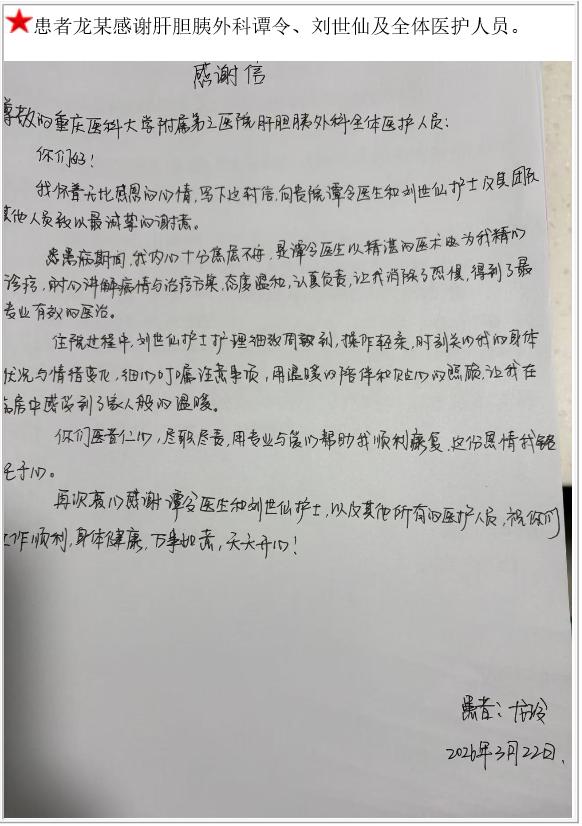 患者龙某感谢肝胆胰外科谭令、刘世仙及全体医护人员。
感谢信
尊敬的重庆医科大学附属第三医院肝胆胰外科全体医护人员:
你们好!
我怀着无比感恩的心情,写下这封信,向贵院谭令医生和刘世仙护士及其团队
其他人员致以最诚挚的谢意。
患病期间,我内心十分焦虑不安,是谭令医生以精湛的医术为我精心
诊疗,耐心讲解病情与治疗方案,态度温和,认真负责,让我消除了恐惧,得到了最
专业有效的医治。
住院过程中,刘世仙护士护理细致周到,操作轻柔,时刻关心我的身体
状况与情绪变化,细心叮嘱注意事项,用温暖的陪伴和贴心的照顾,让我在
病房中感受到了家人般的温暖。
你们医者仁心,尽职尽责,用专业与爱心帮助我顺利康复,这份恩情我铭
记于心。
再次衷心感谢谭令医生和刘世仙护士,以及其他所有的医护人员,祝你们
工作顺利,身体健康,万事如意,天天开心!
患者:
2026年3月22日.